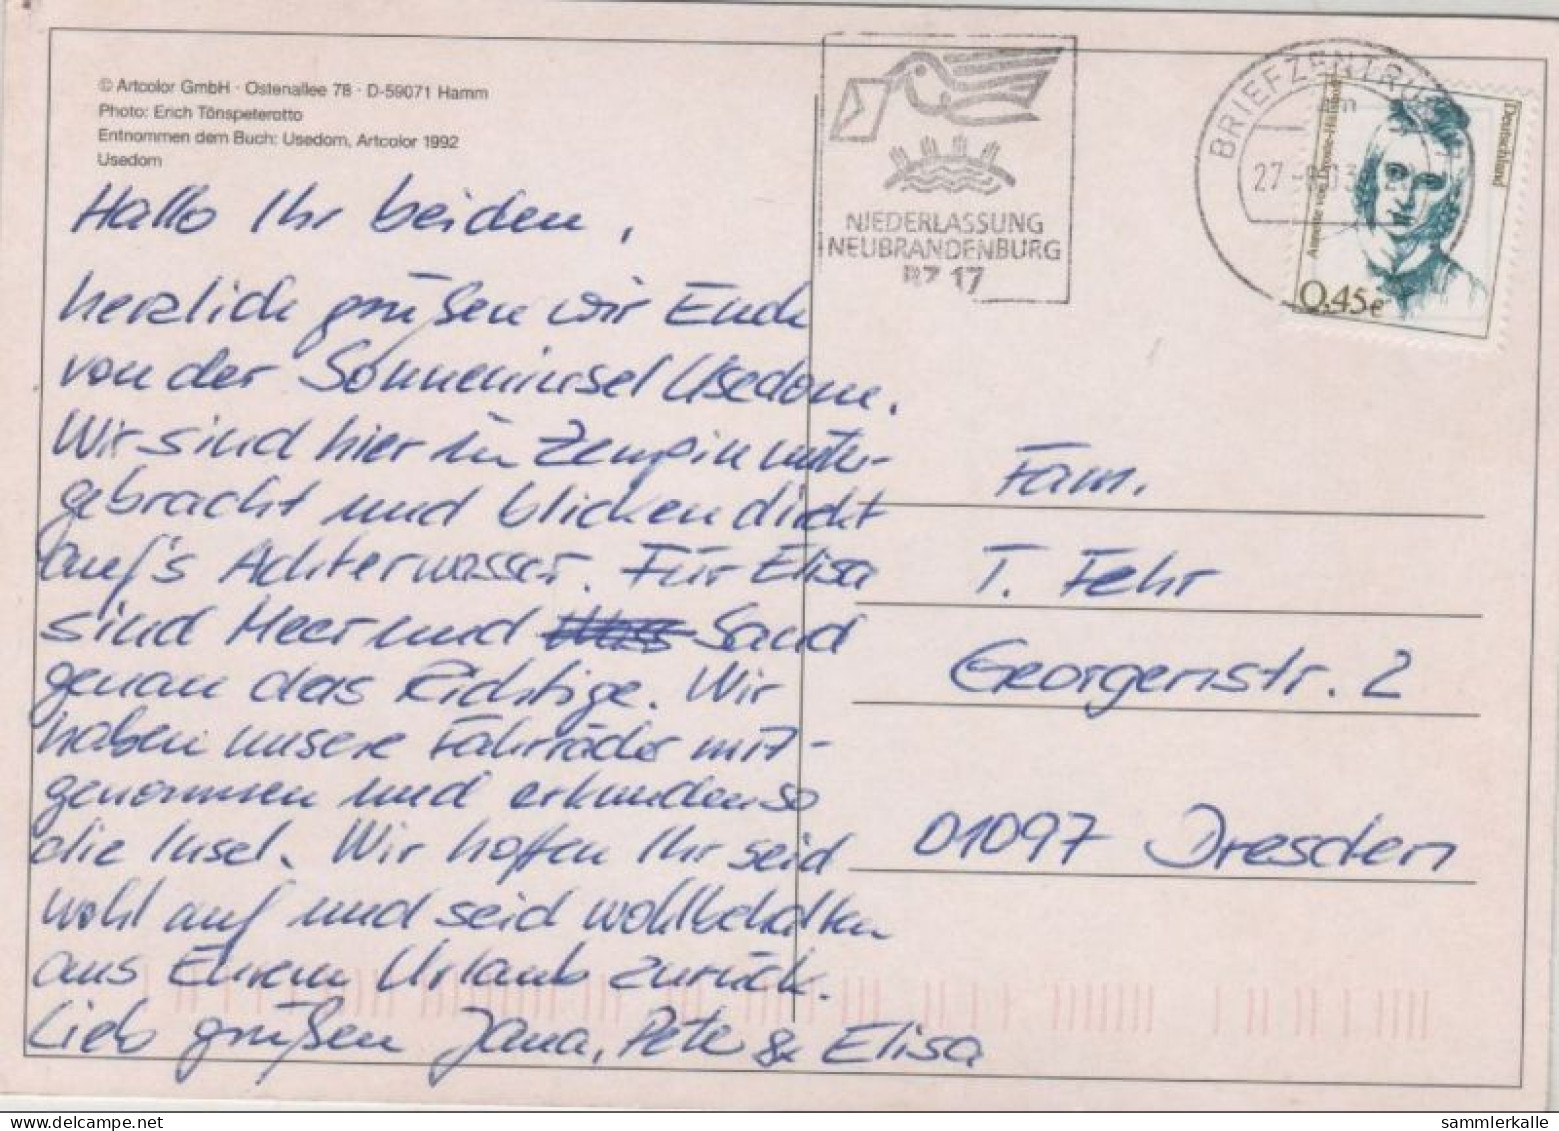 © Artcolor GmbH · Ostenallee 78 · D-59071 Hamm
Photo: Erich Tönspeterotto
Entnommen dem Buch: Usedom, Artcolor 1992
Usedom
Hallo Ihr beiden,
herzlich grüßen wir Euch
von der Sonneninsel Usedom.
Wir sind hier in Zempin unter-
gebracht und blicken direkt
auf's Achterwasser. Für Elisa
sind Meer und Sand
genau das Richtige. Wir
haben unsere Fahrräder mit-
genommen und erkunden so
die Insel. Wir hoffen Ihr seid
wohl auf und seid wohlbehalten
aus Eurem Urlaub zurück.
Lieb grüßen Jana, Pete & Elisa
NIEDERLASSUNG
NEUBRANDENBURG
BZ 17
BRIEFZENTRUM
27
Deutschland
Annette von Droste-Hülshoff
0,45€
Fam.
T. Fehr
Georgenstr. 2
01097 Dresden
sammlerkalle